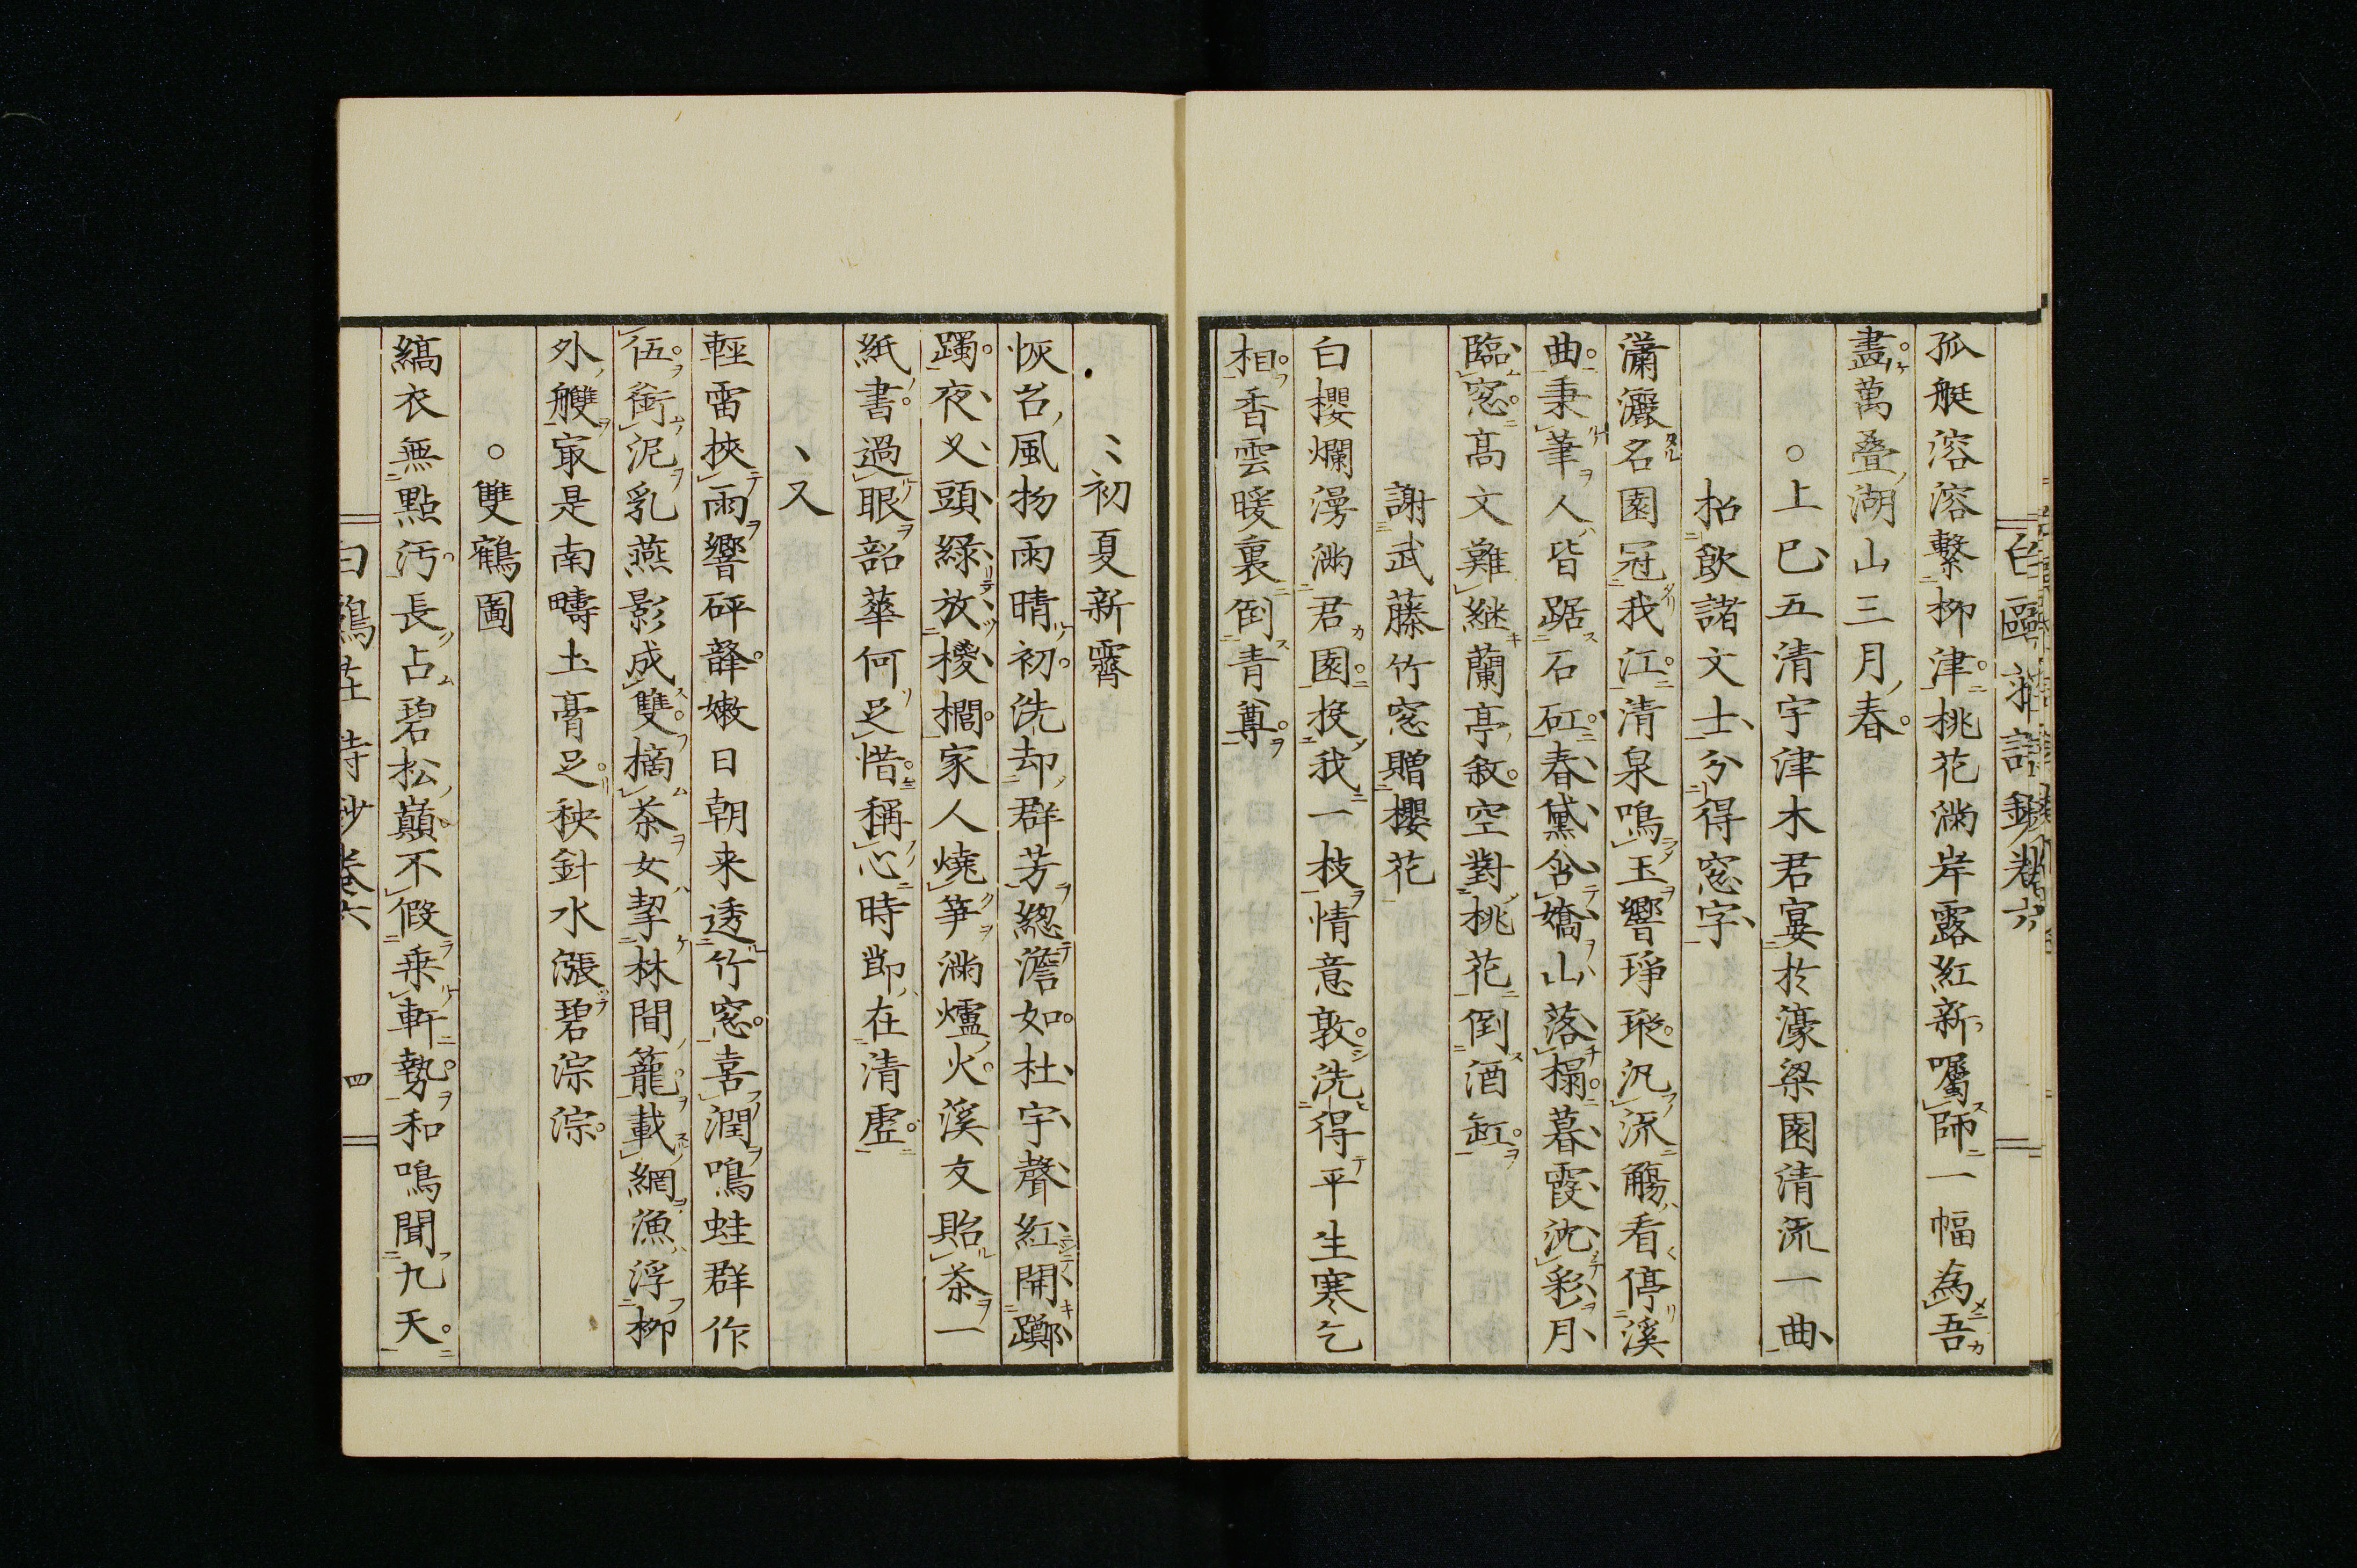 孤艇溶溶繫柳津桃花滿岸露紅新囑師一幅為吾
盡萬叠湖山三月春
○上巳五清宇津木君宴於濠梁園清流一曲
招飲諸文士分得窓字
瀟灑名園冠我江清泉鳴玉響琤瑽汎流觴看停溪
曲秉筆人皆踞石矼春黛含嬌山落榻暮霞沈彩月
臨窓高文難継蘭亭敘空對桃花倒酒缸
謝武藤竹窓贈櫻花
白櫻爛漫滿君園投我一枝情意敦洗得平生寒乞
相香雲暖裏倒青尊
初夏新霽
恢台風物雨晴初洗却群芳緫澹如杜宇聲紅開躑
躅夜叉頭綠放椶櫚家人燒笋滿爐火溪友貽茶一
紙書過眼韶華何足惜稱心時節在清虛
又
輕雷挾雨響砰訇嫩日朝来透竹窓喜潤鳴蛙群作
伍銜泥乳燕影成雙摘茶女挈林間籠載網漁浮柳
外艭㝡是南疇土膏足秧針水漲碧淙淙
○雙鶴圖
縞衣無點汚長占碧松巔不假乗軒勢和鳴聞九天
四